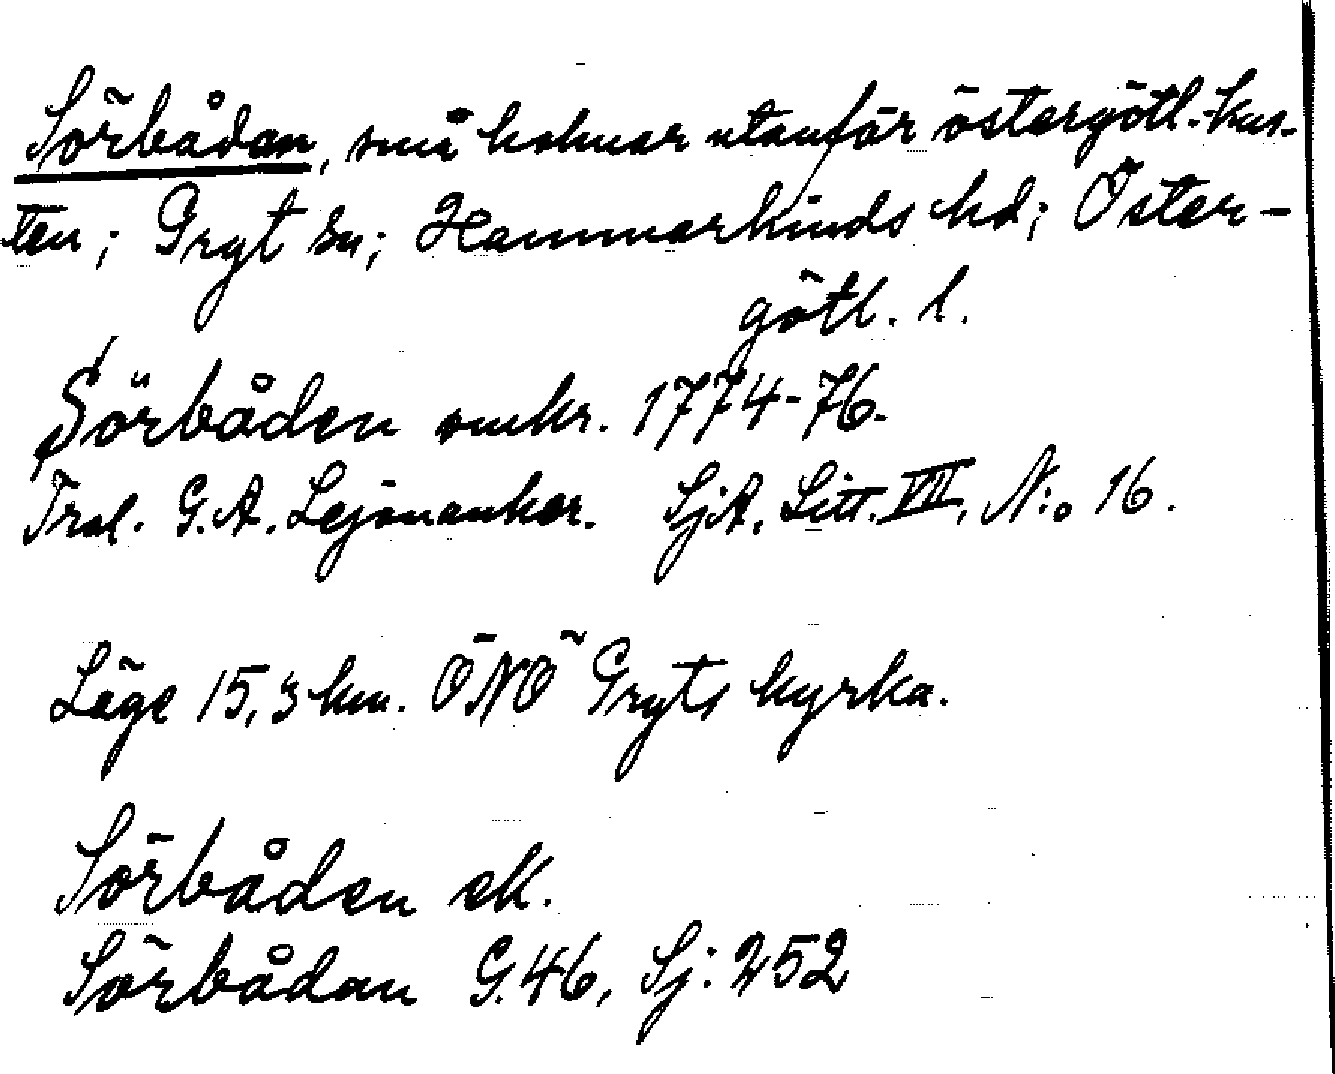 Sörbådan, små holmar utanför östergötl. kus-
ten; Gryt sn; Hammarkinds hd; Öster-
götl. l.
Sörbåden omkr. 1774-76.
Tral. G.A. Lejonankar. SjA. Litt. VII, N:o 16.
Läge 15,3 km. ÖNÖ Gryts kyrka.
Sörbåden ek.
Sörbådan G.46, Sj: 252